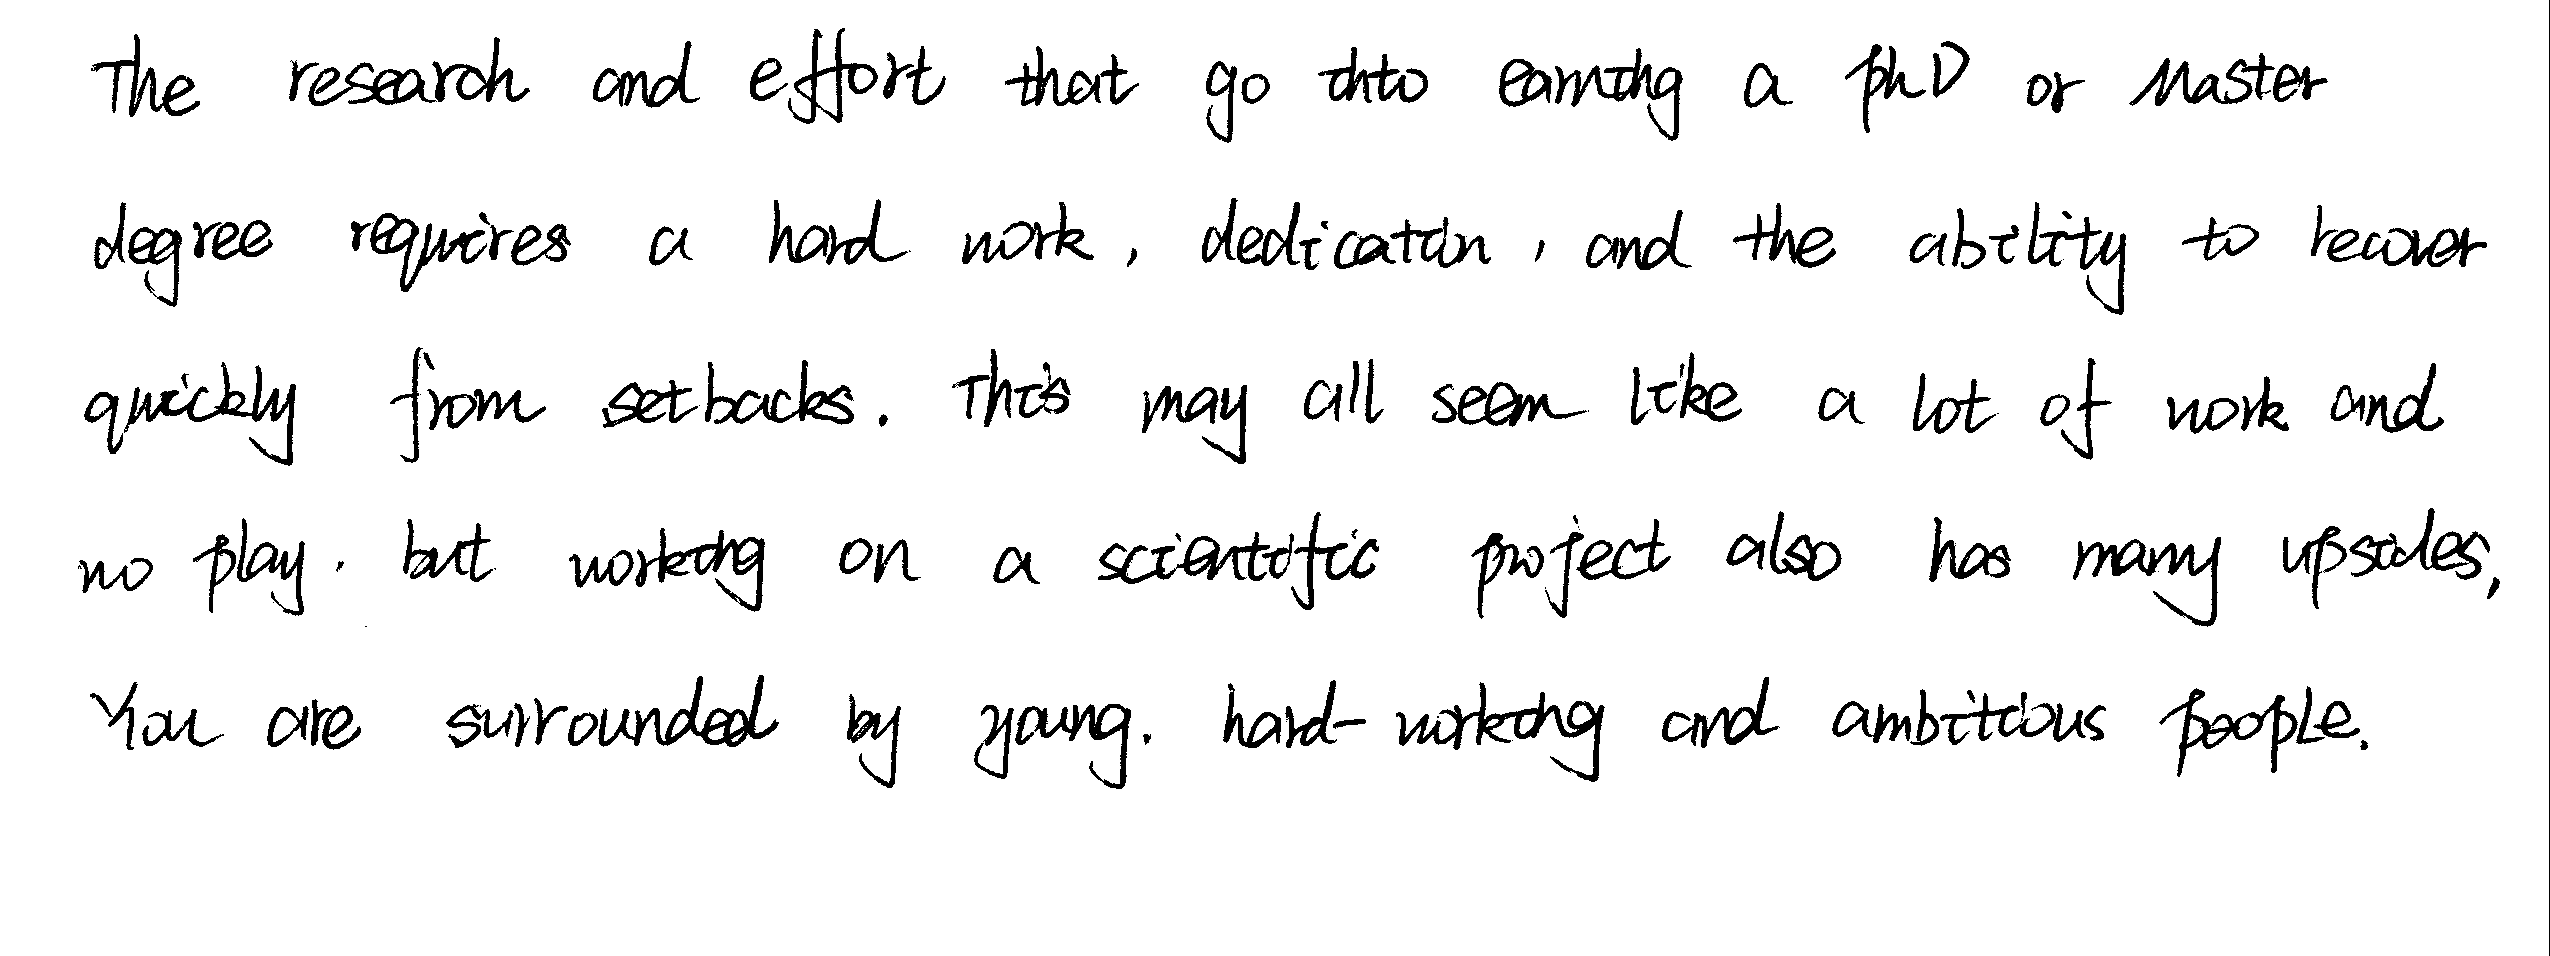 The research and effort that go into earning a phD or Master
degree requires a hard work, dedication, and the ability to recover
quickly from setbacks. This may all seem like a lot of work and
no play. but working on a scientific project also has many upsides,
You are surrounded by young. hard-working and ambitious people.